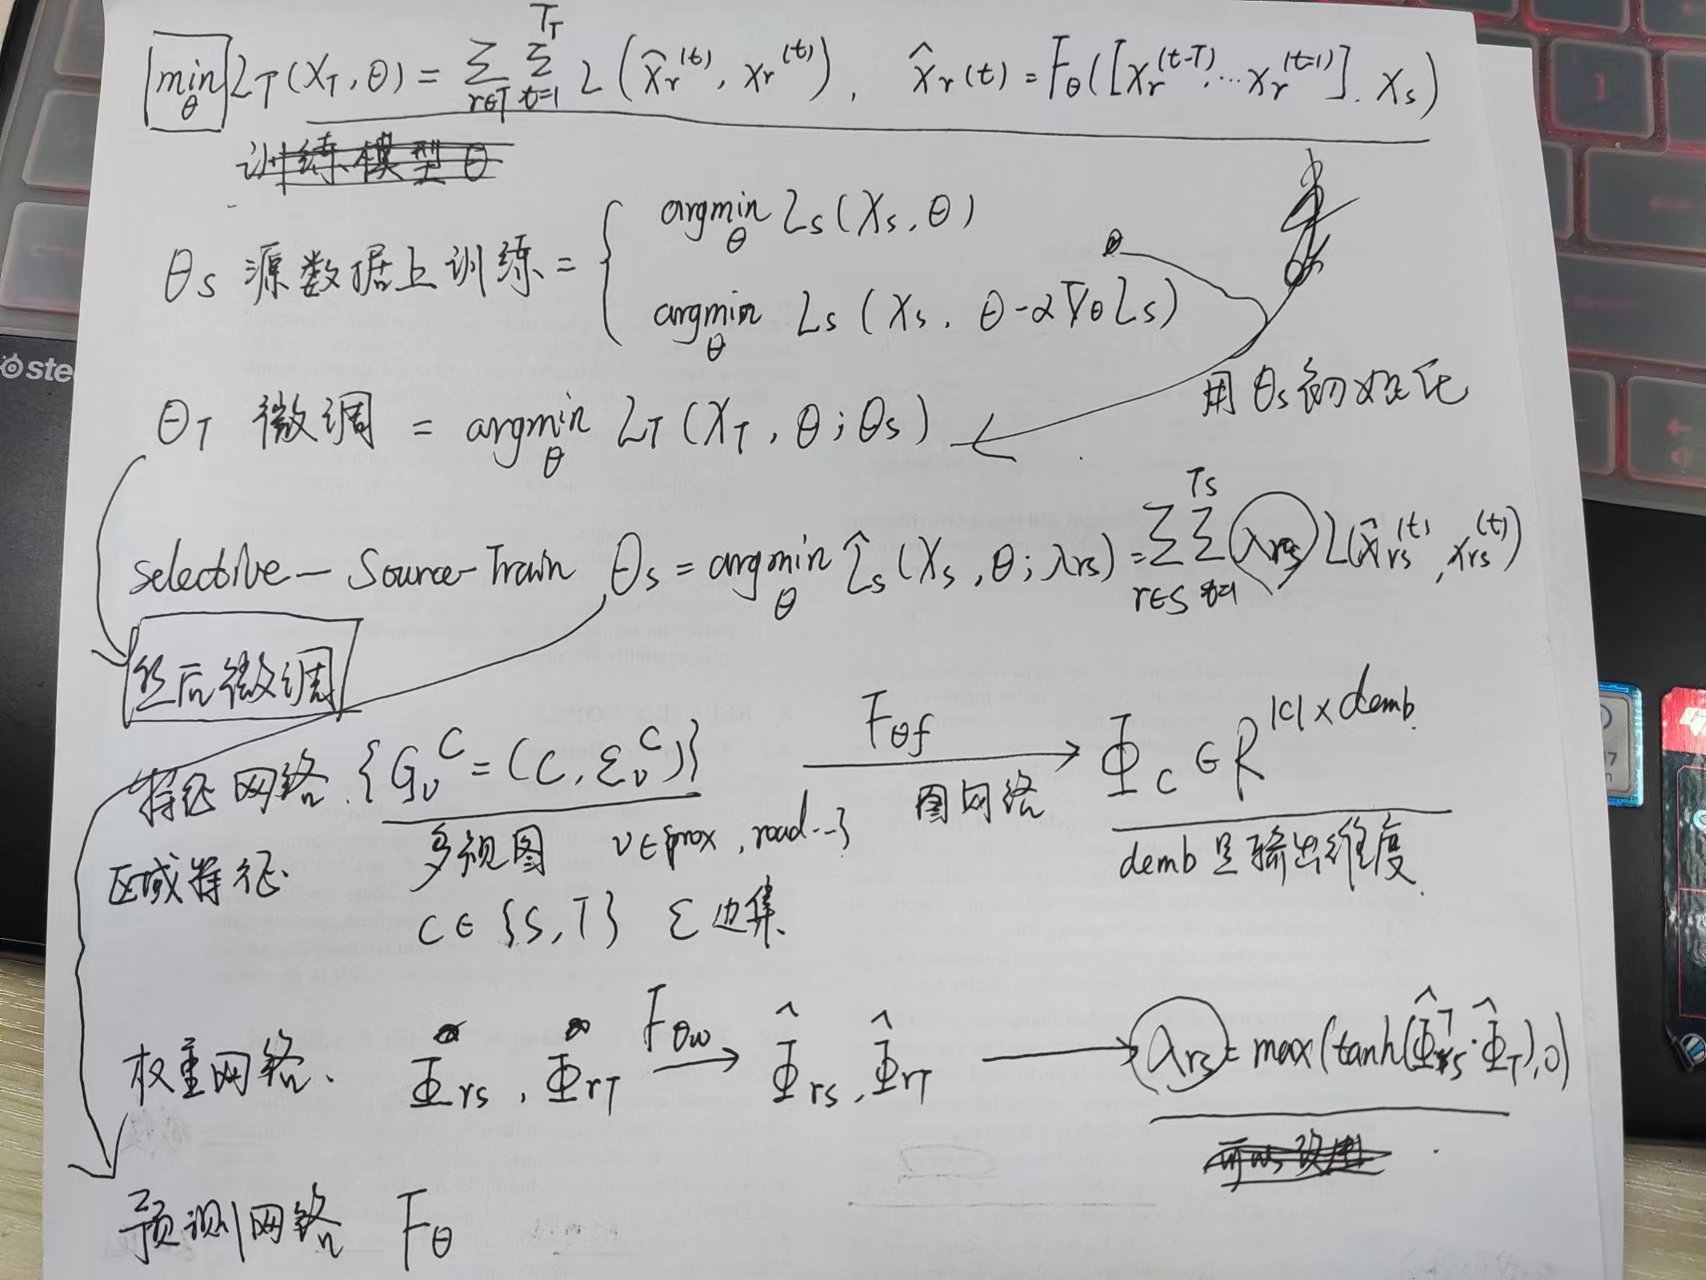 min θ L_T(X_T, θ) = Σ_{r∈T} Σ_{t=1}^{T_T} L(x̂_r^{(t)}, x_r^{(t)}), x̂_r(t) = F_θ([x_r^{(t-T)}, ... x_r^{(t=1)}], X_s)
训练模型 θ
θ_S 源数据上训练 = { argmin_θ L_S(X_S, θ)
argmin_θ L_S(X_S, θ-α∇_θ L_S)
θ
用 θ_S 初始化
θ_T 微调 = argmin_θ L_T(X_T, θ; θ_S)
selective - Source-Train θ_S = argmin_θ L̂_S(X_S, θ; λ_rs) = Σ_{r∈S} Σ_{t=1}^{T_S} λ_rs L(x̂_rs^{(t)}, x_rs^{(t)})
然后微调
特征网络. {G_ν^C = (C, ε_ν^C)} F_θf Φ_C ∈ R^{|C|×demb}
图网络
区域特征. 多视图 ν∈{prox, road...} demb 是输出维度
C∈{S, T} ε 边集
权重网络. Φ_rs, Φ_rT F_θw Φ̂_rs, Φ̂_rT λ_rs = max(tanh(Φ̂_rs^T · Φ̂_T), 0)
预测网络 F_θ